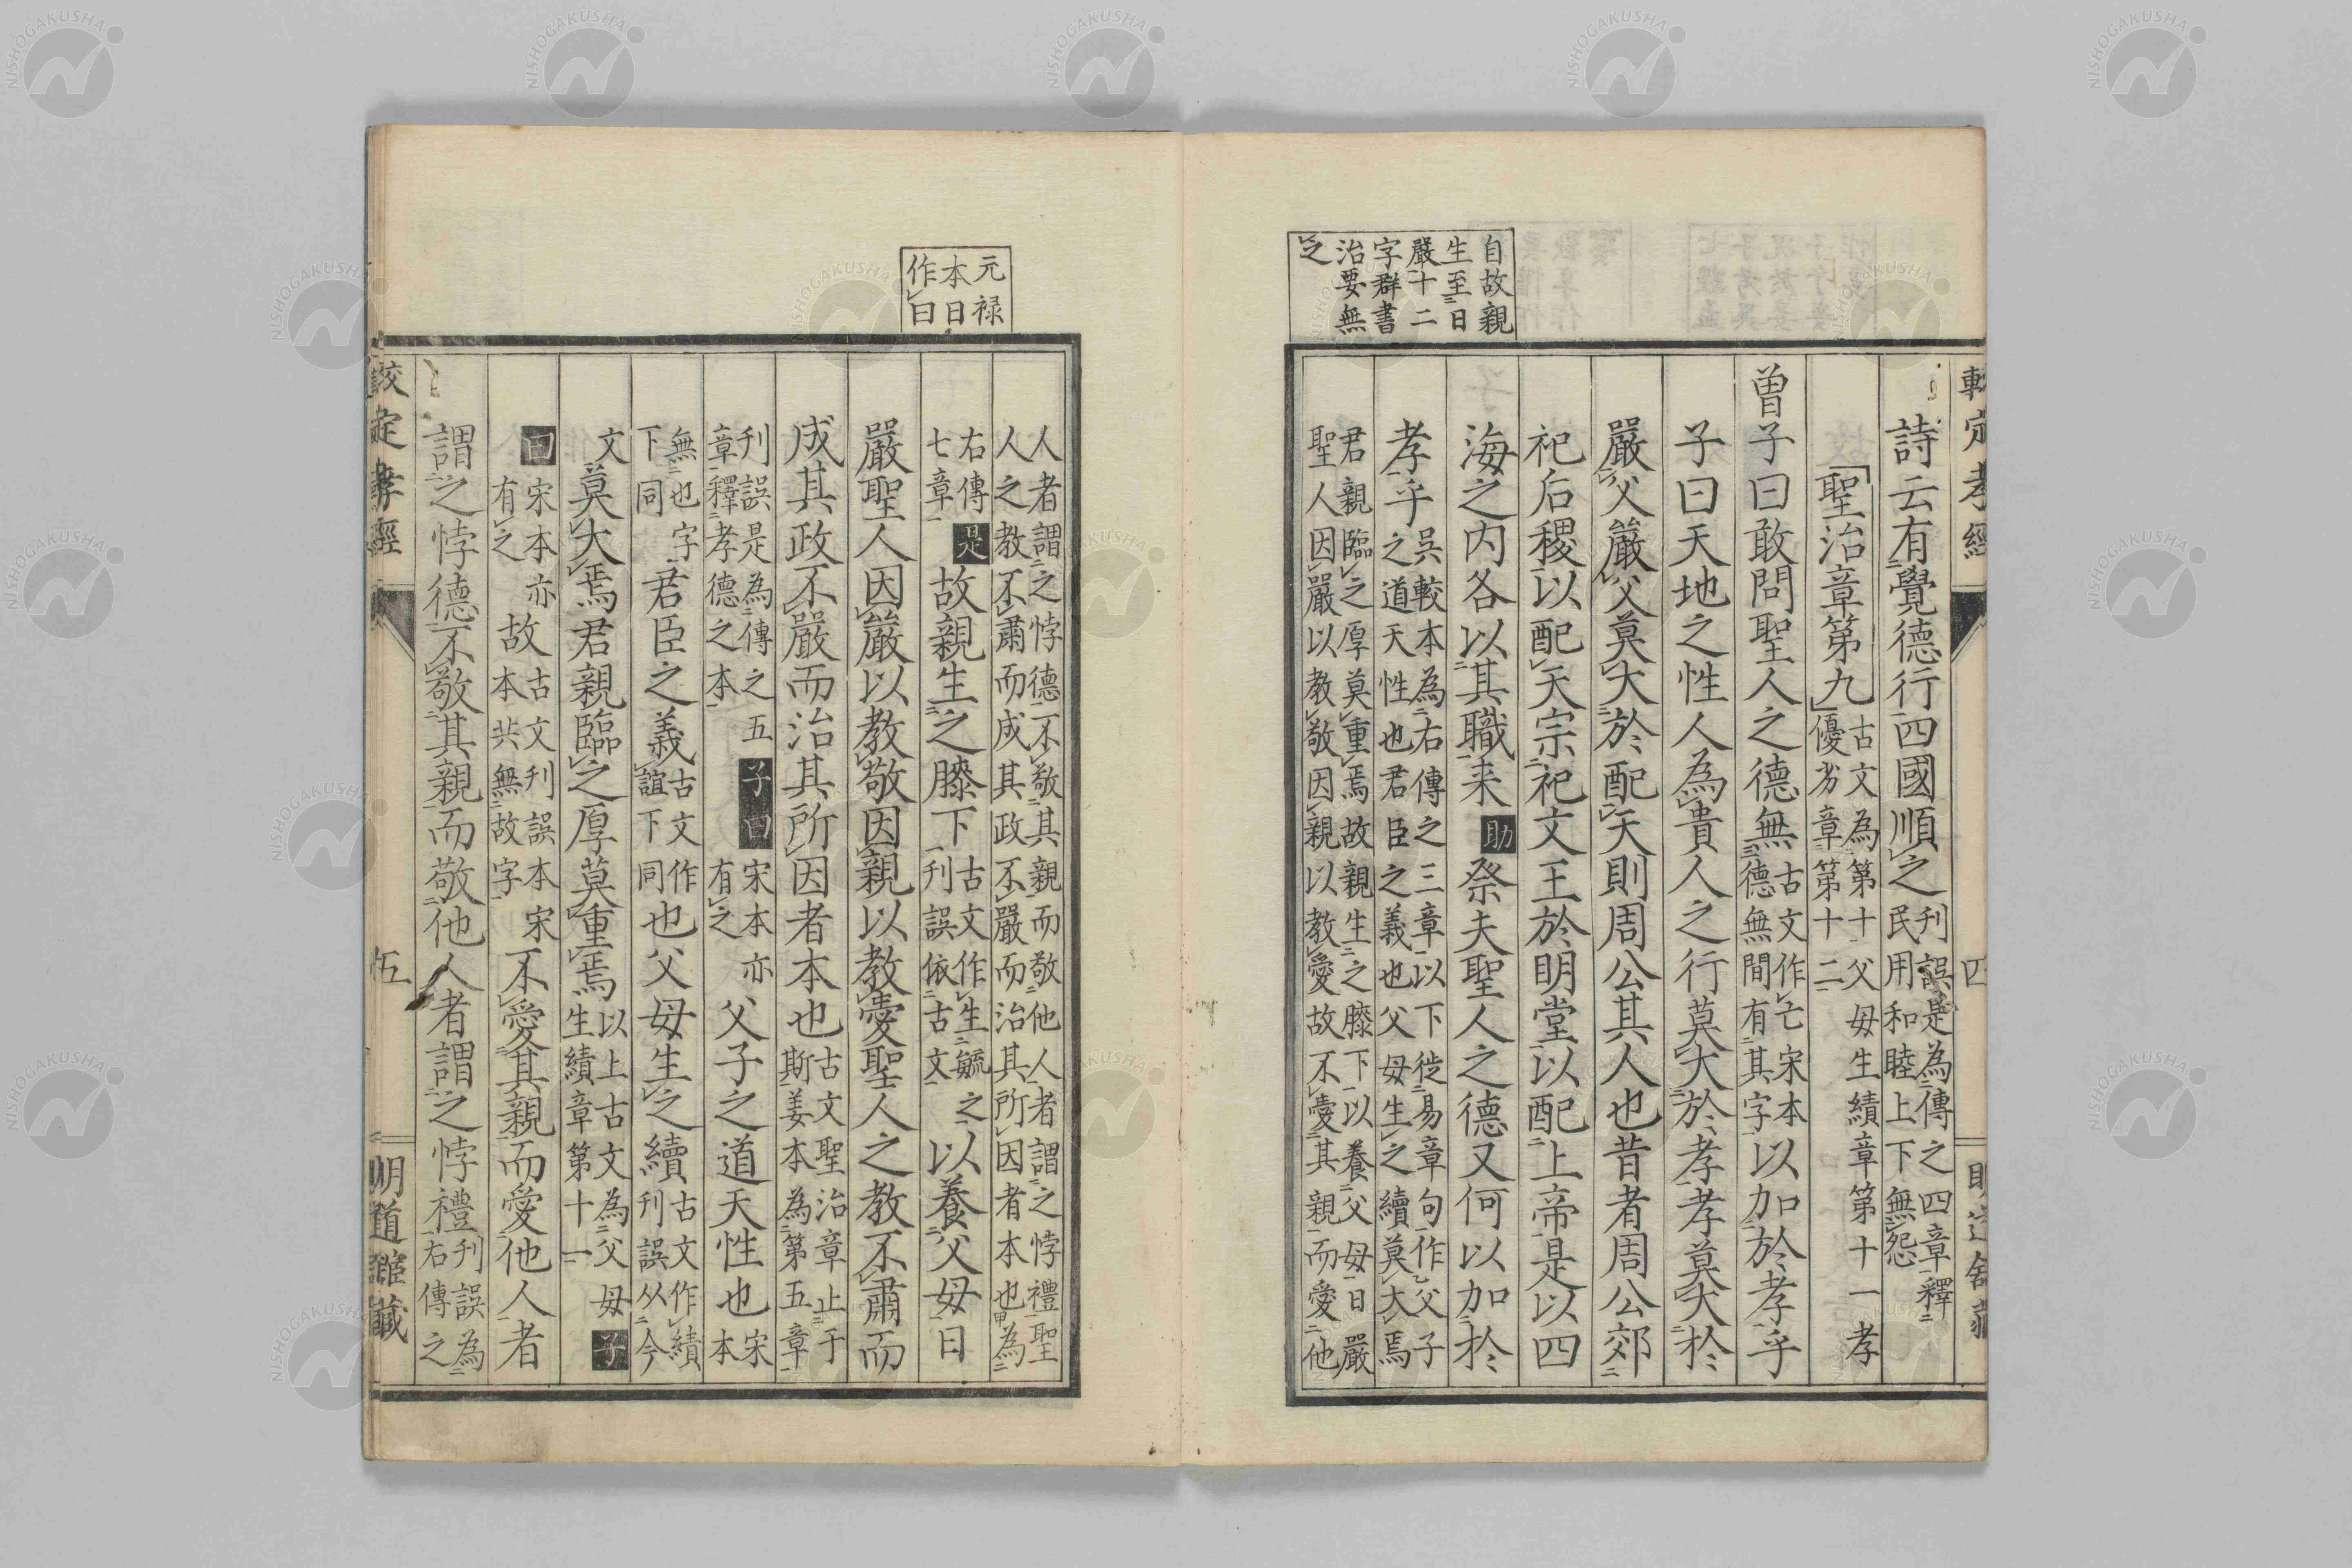 自故親
生至日
嚴十二
字群書
治要無
之
詩云有覺德行四國順之刊誤是為傳之四章釋民用和睦上下無怨
聖治章第九古文為第十父母生績章第十一孝優劣章第十二
曽子曰敢問聖人之德無古文作亡宋本德無間有其字以加於孝乎
子曰天地之性人為貴人之行莫大於孝孝莫大於
嚴父嚴父莫大於配天則周公其人也昔者周公郊
祀后稷以配天宗祀文王於明堂以配上帝是以四
海之内各以其職来助祭夫聖人之德又何以加於
孝乎吳較本為右傳之三章以下従易章句作父子之道天性也君臣之義也父母生之續莫大焉
君親臨之厚莫重焉故親生之膝下以養父母日嚴聖人因嚴以教敬因親以教愛故不愛其親而愛他
元禄
本日
作曰
人者謂之悖德不敬其親而敬他人者謂之悖禮聖人之教不肅而成其政不嚴而治其所因者本也為
右傳七章是故親生之膝下古文作生毓之刊誤依古文以養父母日
嚴聖人因嚴以教敬因親以教愛聖人之教不肅而
成其政不嚴而治其所因者本也古文聖治章止于斯姜本為第五章
刊誤是為傳之五章釋孝德之本子曰宋本亦有之父子之道天性也宋本
無也字下同君臣之義古文作誼下同也父母生之續古文作績刊誤从今
文莫大焉君親臨之厚莫重焉以上古文為父母生績章第十一子
曰宋本亦有之故古文刊誤本宋本共無故字不愛其親而愛他人者
謂之悖德不敬其親而敬他人者謂之悖禮刊誤為右傳之
較定孝經
五
明道館藏